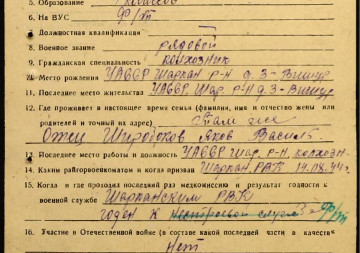 5. Образование
6. На ВУС ф/т
7. Должностная квалификация
8. Военное звание рядовой
9. Гражданская специальность колхозник
10. Место рождения УАССР Шаркан р-н д. З-Вишур
11. Последнее место жительства УАССР, Шар. р-н д. З-Вишур
12. Где проживает в настоящее время семья (фамилия, имя и отчество жены или
родителей и точный их адрес) Там же
Отец Широбоков Яков Васил.
13. Последнее место работы и должность УАССР Шар. р-н, колхозн.
14. Каким райгорвоенкоматом и когда призван Шаркан. РВК 14.08.44г.
15. Когда и где проходил последний раз медкомиссию и результат годности к
военной службе Шарканским РВК
годен к нестроевой службе ф/т
16. Участие в Отечественной войне (в составе какой последней части в качеств
Нет